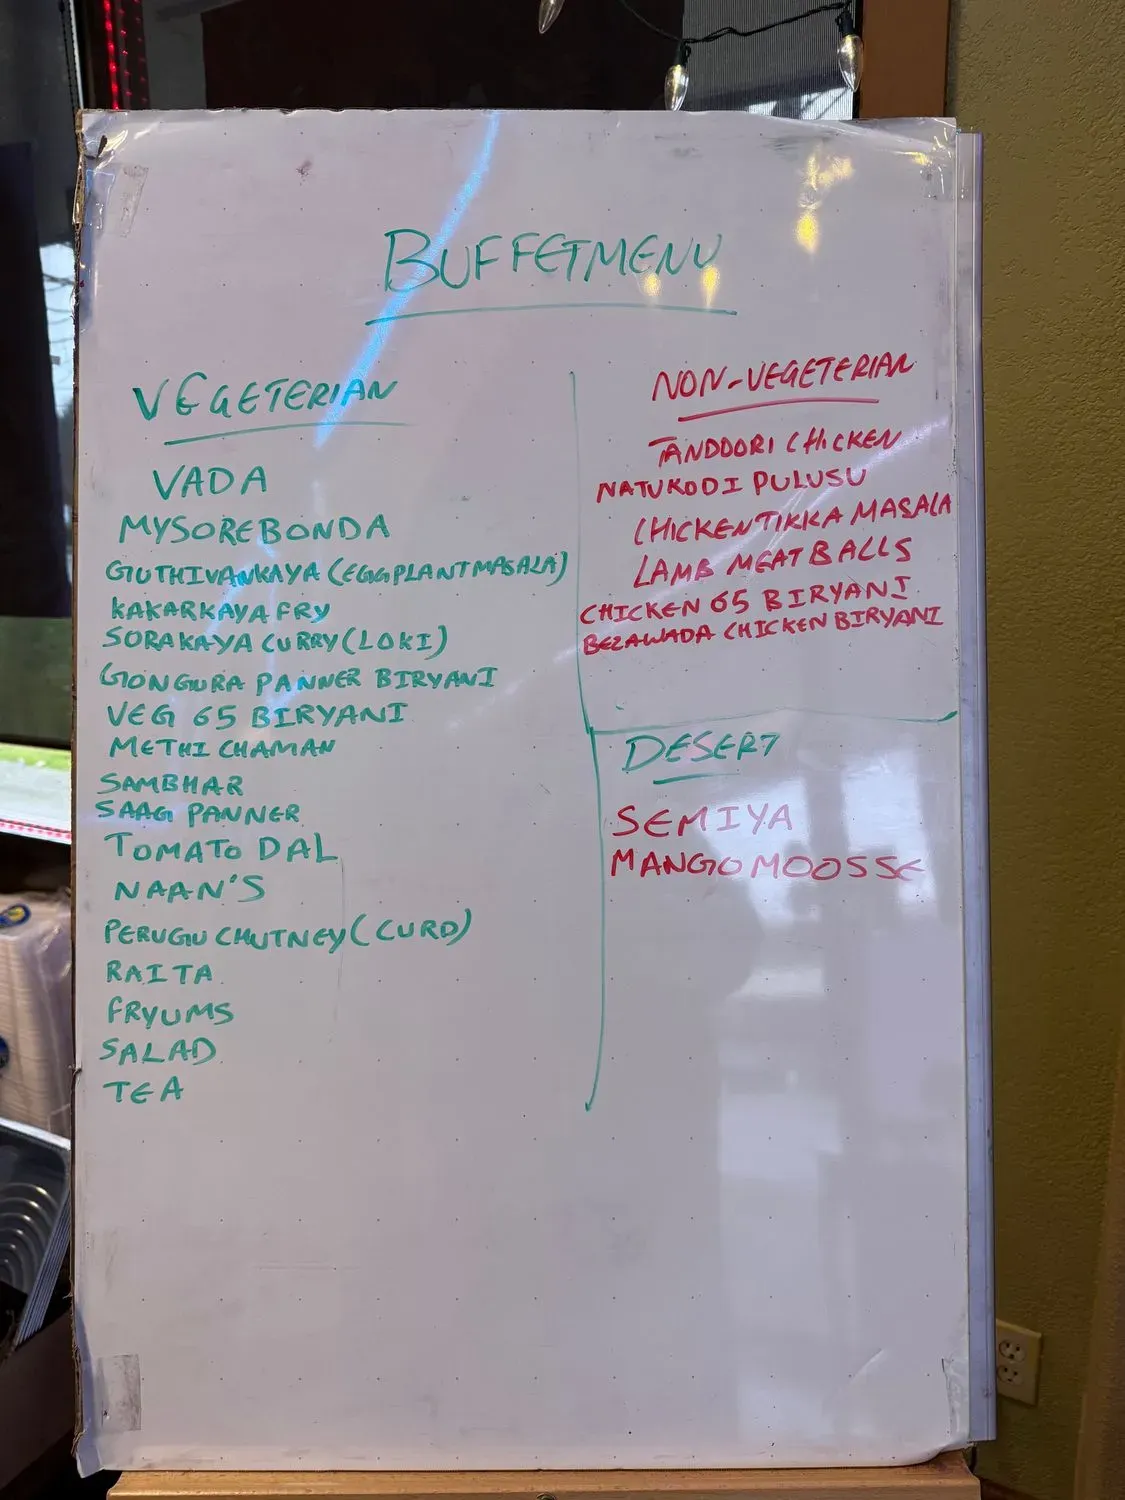 BUFFETMENU
VEGETERIAN
VADA
MYSORE BONDA
GUTHIVANKAYA (EGGPLANT MASALA)
KAKARKAYA FRY
SORAKAYA CURRY (LOKI)
GONGURA PANNER BIRYANI
VEG 65 BIRYANI
METHI CHAMAN
SAMBHAR
SAAG PANNER
TOMATO DAL
NAAN'S
PERUGU CHUTNEY (CURD)
RAITA
FRYUMS
SALAD
TEA
NON-VEGETERIAN
TANDOORI CHICKEN
NATUKODI PULUSU
CHICKEN TIKKA MASALA
LAMB MEAT BALLS
CHICKEN 65 BIRYANI
BEZAWADA CHICKEN BIRYANI
DESERT
SEMIYA
MANGO MOOSSE